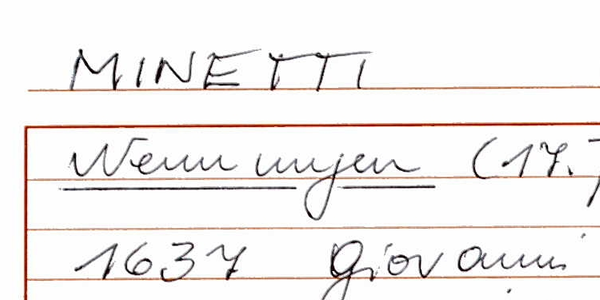 MINETTI
Nennungen (17.)
1637 Giovanni